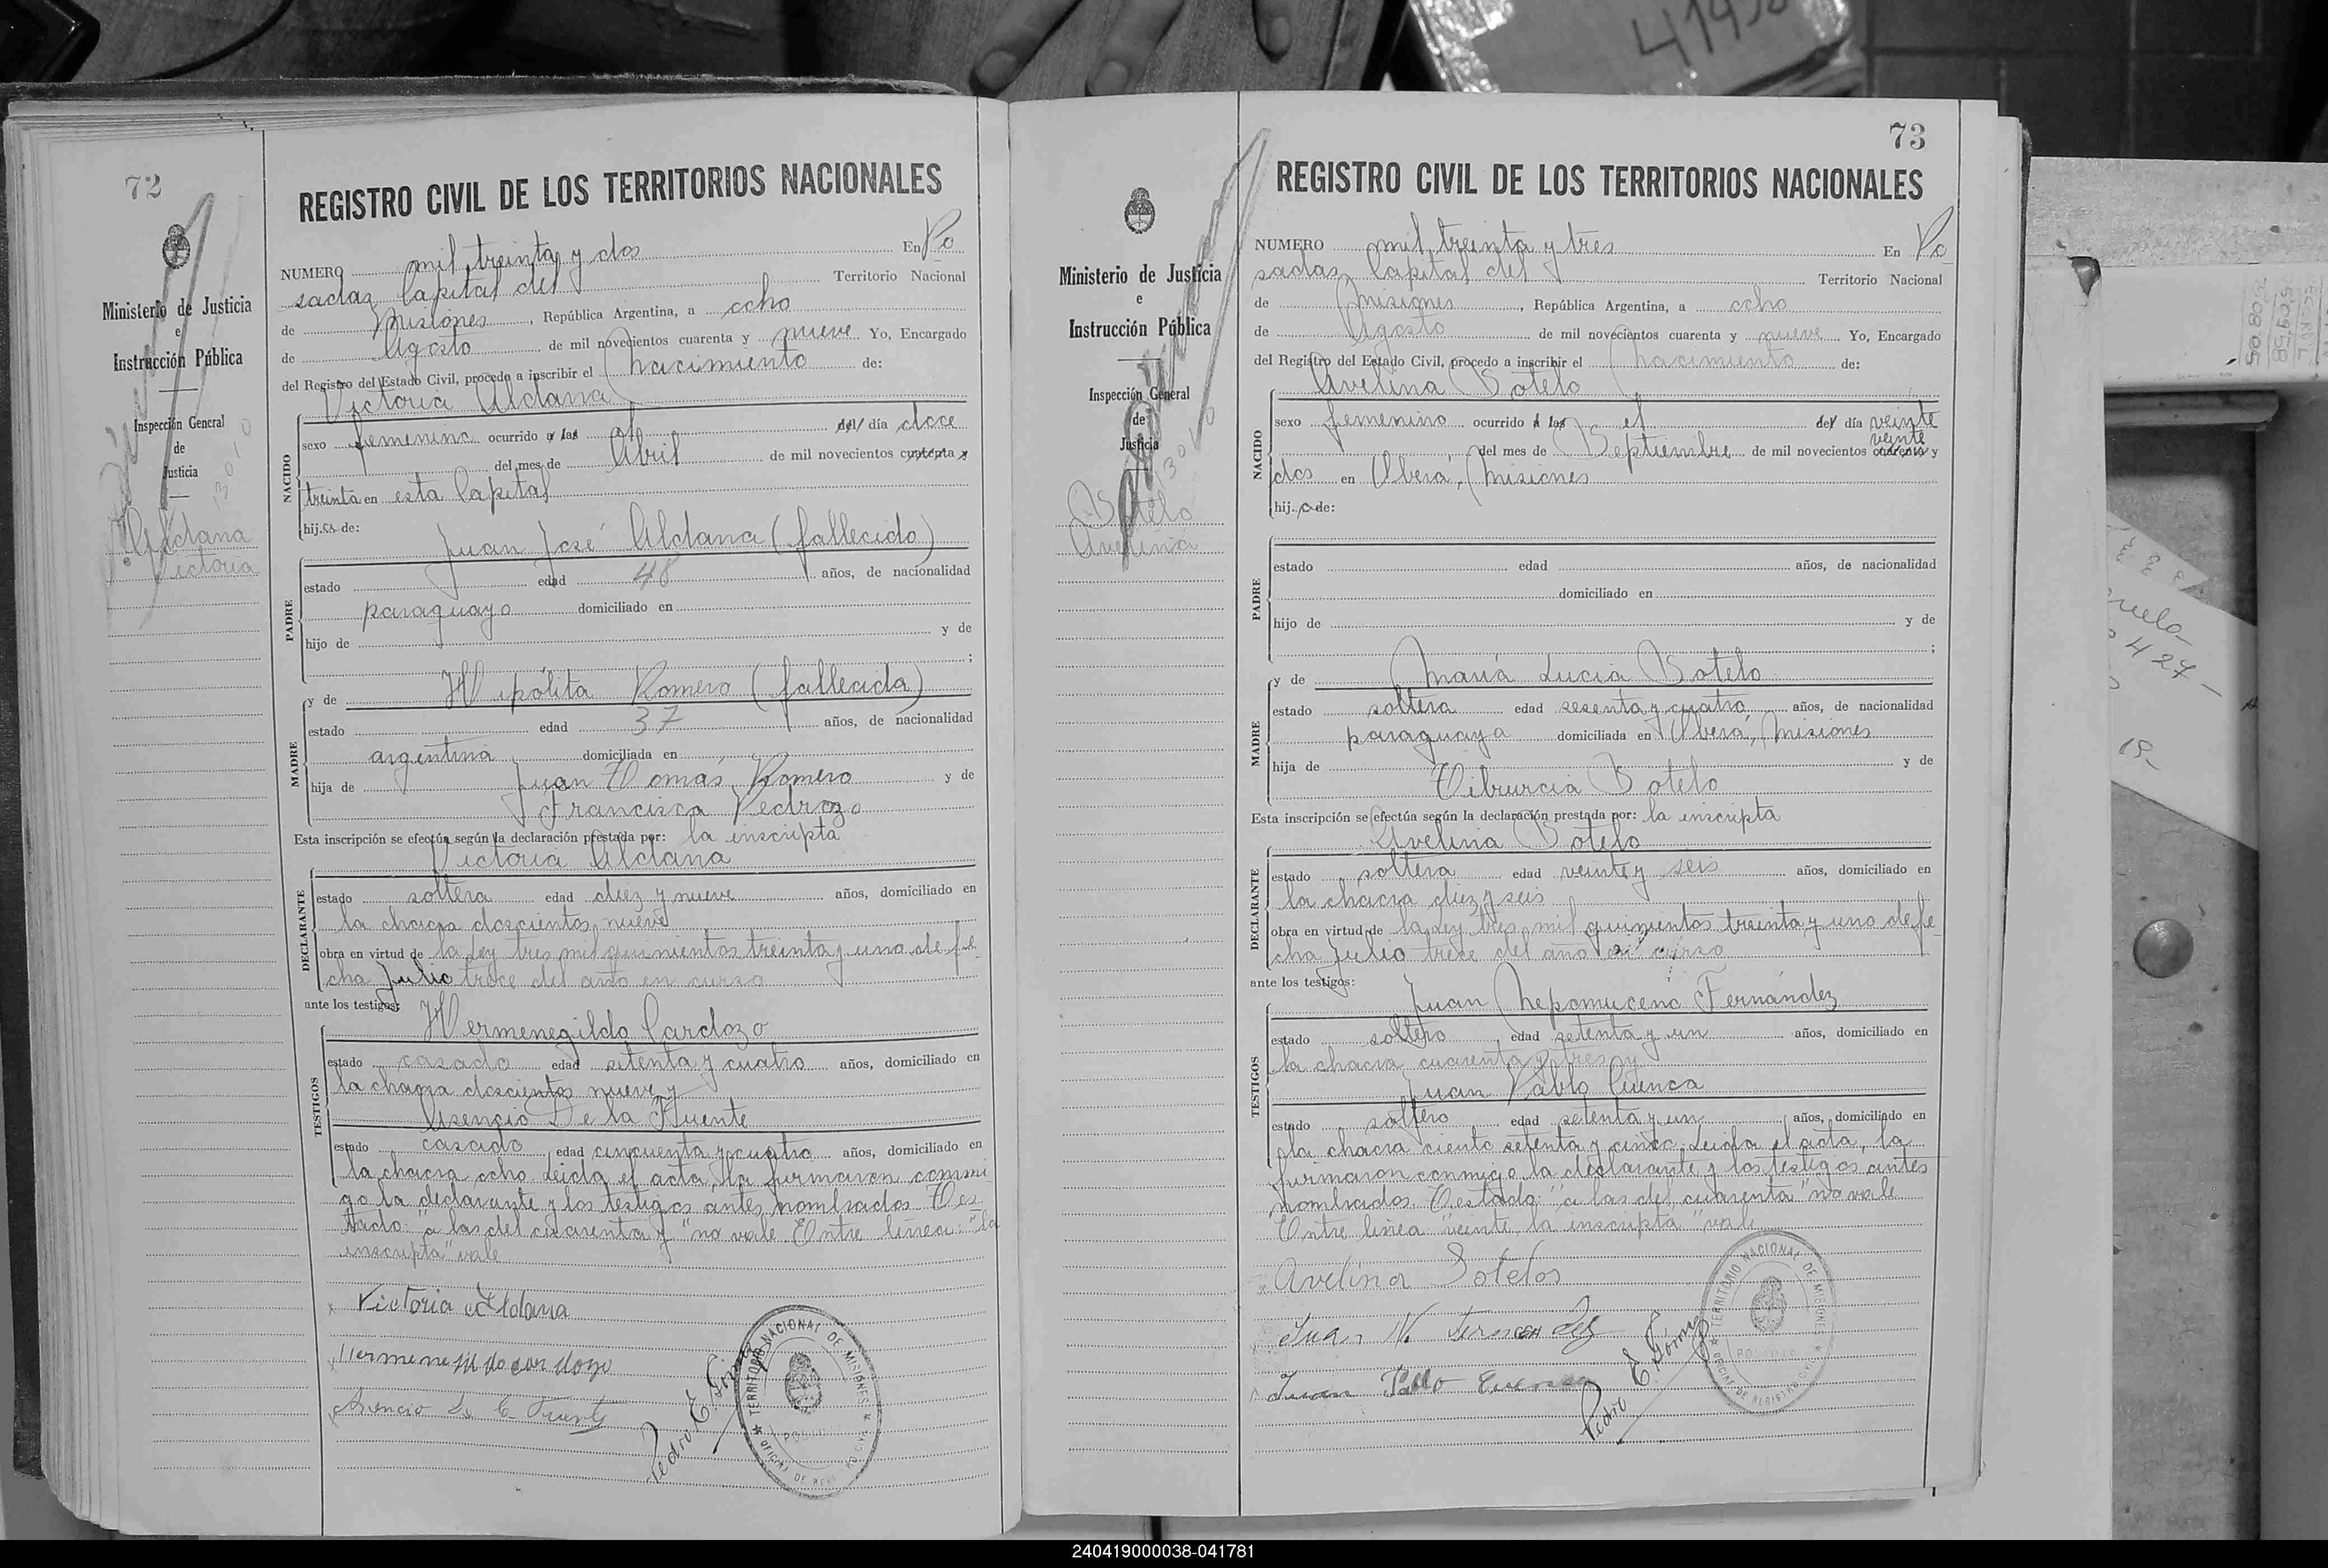 41498
72
REGISTRO CIVIL DE LOS TERRITORIOS NACIONALES
NUMERO mil treinta y dos En Po
sadas, Capital del Territorio Nacional
de Misiones, República Argentina, a ocho
de Agosto de mil novecientos cuarenta y nueve Yo, Encargado
del Registro del Estado Civil, procedo a inscribir el nacimiento de:
Victoria Aldana
NACIDO
sexo femenino ocurrido a las el del día doce
del mes de Abril de mil novecientos cuarenta y
treinta en esta Capital
hija de:
Juan José Aldana (fallecido)
PADRE
estado edad 48 años, de nacionalidad
paraguayo domiciliado en
hijo de y de
;
y de Hipólita Romero (fallecida)
MADRE
estado edad 37 años, de nacionalidad
argentina domiciliada en
hija de Juan Tomás Romero y de
Francisca Pedrozo
Esta inscripción se efectúa según la declaración prestada por: la inscripta
Victoria Aldana
DECLARANTE
estado soltera edad diez y nueve años, domiciliado en
la chacra doscientos nueve
obra en virtud de la Ley tres mil quinientos treinta y uno de fe
cha Julio trece del año en curso
ante los testigos:
Hermenegildo Cardozo
TESTIGOS
estado casado edad setenta y cuatro años, domiciliado en
la chacra doscientos nueve y
Asencio De la Fuente
estado casado edad cincuenta y cuatro años, domiciliado en
la chacra ocho Leida el acta, la firmaron conmi
go la declarante y los testigos antes nombrados Tes
tado: "a las del cuarenta y" no vale. Entre línea: "la
inscripta" vale
Victoria Aldana
Hermenejildo cardozo
Asencio De la Fuente
Pedro E. Gómez
TERRITORIO NACIONAL DE MISIONES
OFICINA DE REGISTRO CIVIL
POSADAS
Ministerio de Justicia
e
Instrucción Pública
Inspección General
de
Justicia
Aldana
Victoria
73
REGISTRO CIVIL DE LOS TERRITORIOS NACIONALES
NUMERO mil treinta y tres En Po
sadas, Capital del Territorio Nacional
de Misiones, República Argentina, a ocho
de Agosto de mil novecientos cuarenta y nueve Yo, Encargado
del Registro del Estado Civil, procedo a inscribir el nacimiento de:
Avelina Botelo
NACIDO
sexo femenino ocurrido a las el del día veinte
veinte
del mes de Septiembre de mil novecientos cuarenta y
dos en Oberá, Misiones
hija de:
PADRE
estado edad años, de nacionalidad
domiciliado en
hijo de y de
;
y de María Lucia Botelo
MADRE
estado soltera edad sesenta y cuatro años, de nacionalidad
paraguaya domiciliada en Oberá, Misiones
hija de y de
Tiburcia Botelo
Esta inscripción se efectúa según la declaración prestada por: la inscripta
Avelina Botelo
DECLARANTE
estado soltera edad veinte y seis años, domiciliado en
la chacra diez y seis
obra en virtud de la Ley tres mil quinientos treinta y uno de fe
cha Julio trece del año en curso
ante los testigos:
Juan Nepomuceno Fernández
TESTIGOS
estado soltero edad setenta y un años, domiciliado en
la chacra cuarenta y tres y
Juan Pablo Cuenca
estado soltero edad setenta y un años, domiciliado en
la chacra ciento setenta y cinco. Leida el acta, la
firmaron conmigo la declarante y los testigos antes
nombrados. Testado: "a las del cuarenta" no vale
Entre línea "veinte, la inscripta" vale
Avelina Sotelos
Juan N. Fernandez
Juan Pablo Cuenca
Pedro E. Gómez
TERRITORIO NACIONAL DE MISIONES
OFICINA DE REGISTRO CIVIL
POSADAS
Ministerio de Justicia
e
Instrucción Pública
Inspección General
de
Justicia
Botelo
Avelina
240419000038-041781